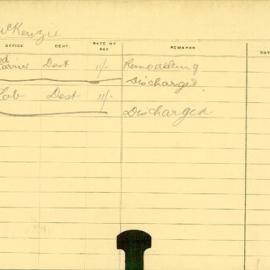 McKenzie
OFFICE DEPT. RATE OF PAY REMARKS DATE
Carrier Dest 11/- Remodelling
Discharged
Lab Dest 11/-
Discharged